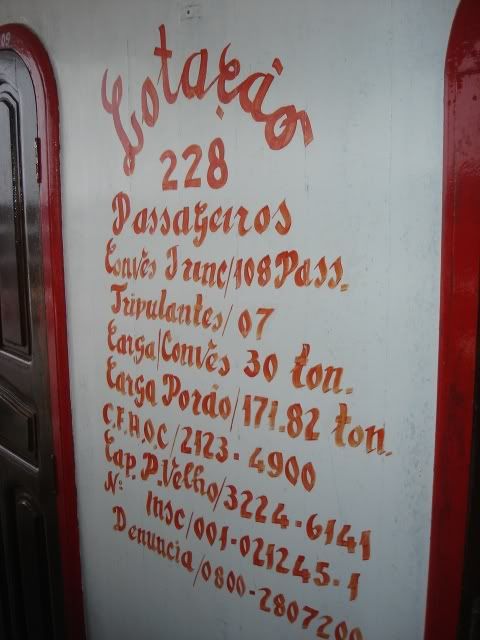 09
Lotação
228
Passageiros
Convès Trinc/108 Pass.
Tripulantes/07
Carga/Convès 30 ton.
Carga Porão/171.82 ton.
C.F.A.O.C/2123-4900
Cap. P. Velho/3224-6141
Nº Insc/001-021245-1
Denuncia/0800-2807200